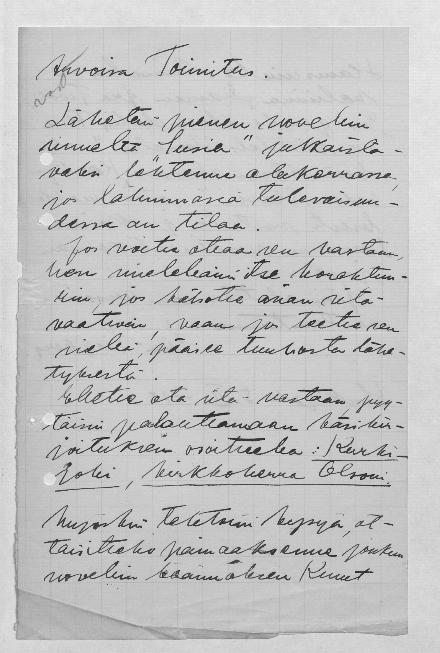 Arvoisa Toimitus.
Lähetän pienen novellin
nimeltä "Lusia" julkaista-
vaksi lehtenne alakerrassa,
jos lähimmässä tulevaisuu-
dessa on tilaa.
Jos voitte ottaa sen vastaan,
luen mielelläni itse korehtuu-
rin, jos katsotte asian sitä
vaativan, vaan jos teette sen
siellä, pääsee
Ellette ota sitä vastaan, pyy-
täisin palauttamaan käsikir-
joituksen osoitteella: Kurki-
joki, kirkkoherra Olsoni.
Myöskin tahtoisin kysyä, ot-
taisitteko painaaksenne jonkun
novellin käännöksen Knut